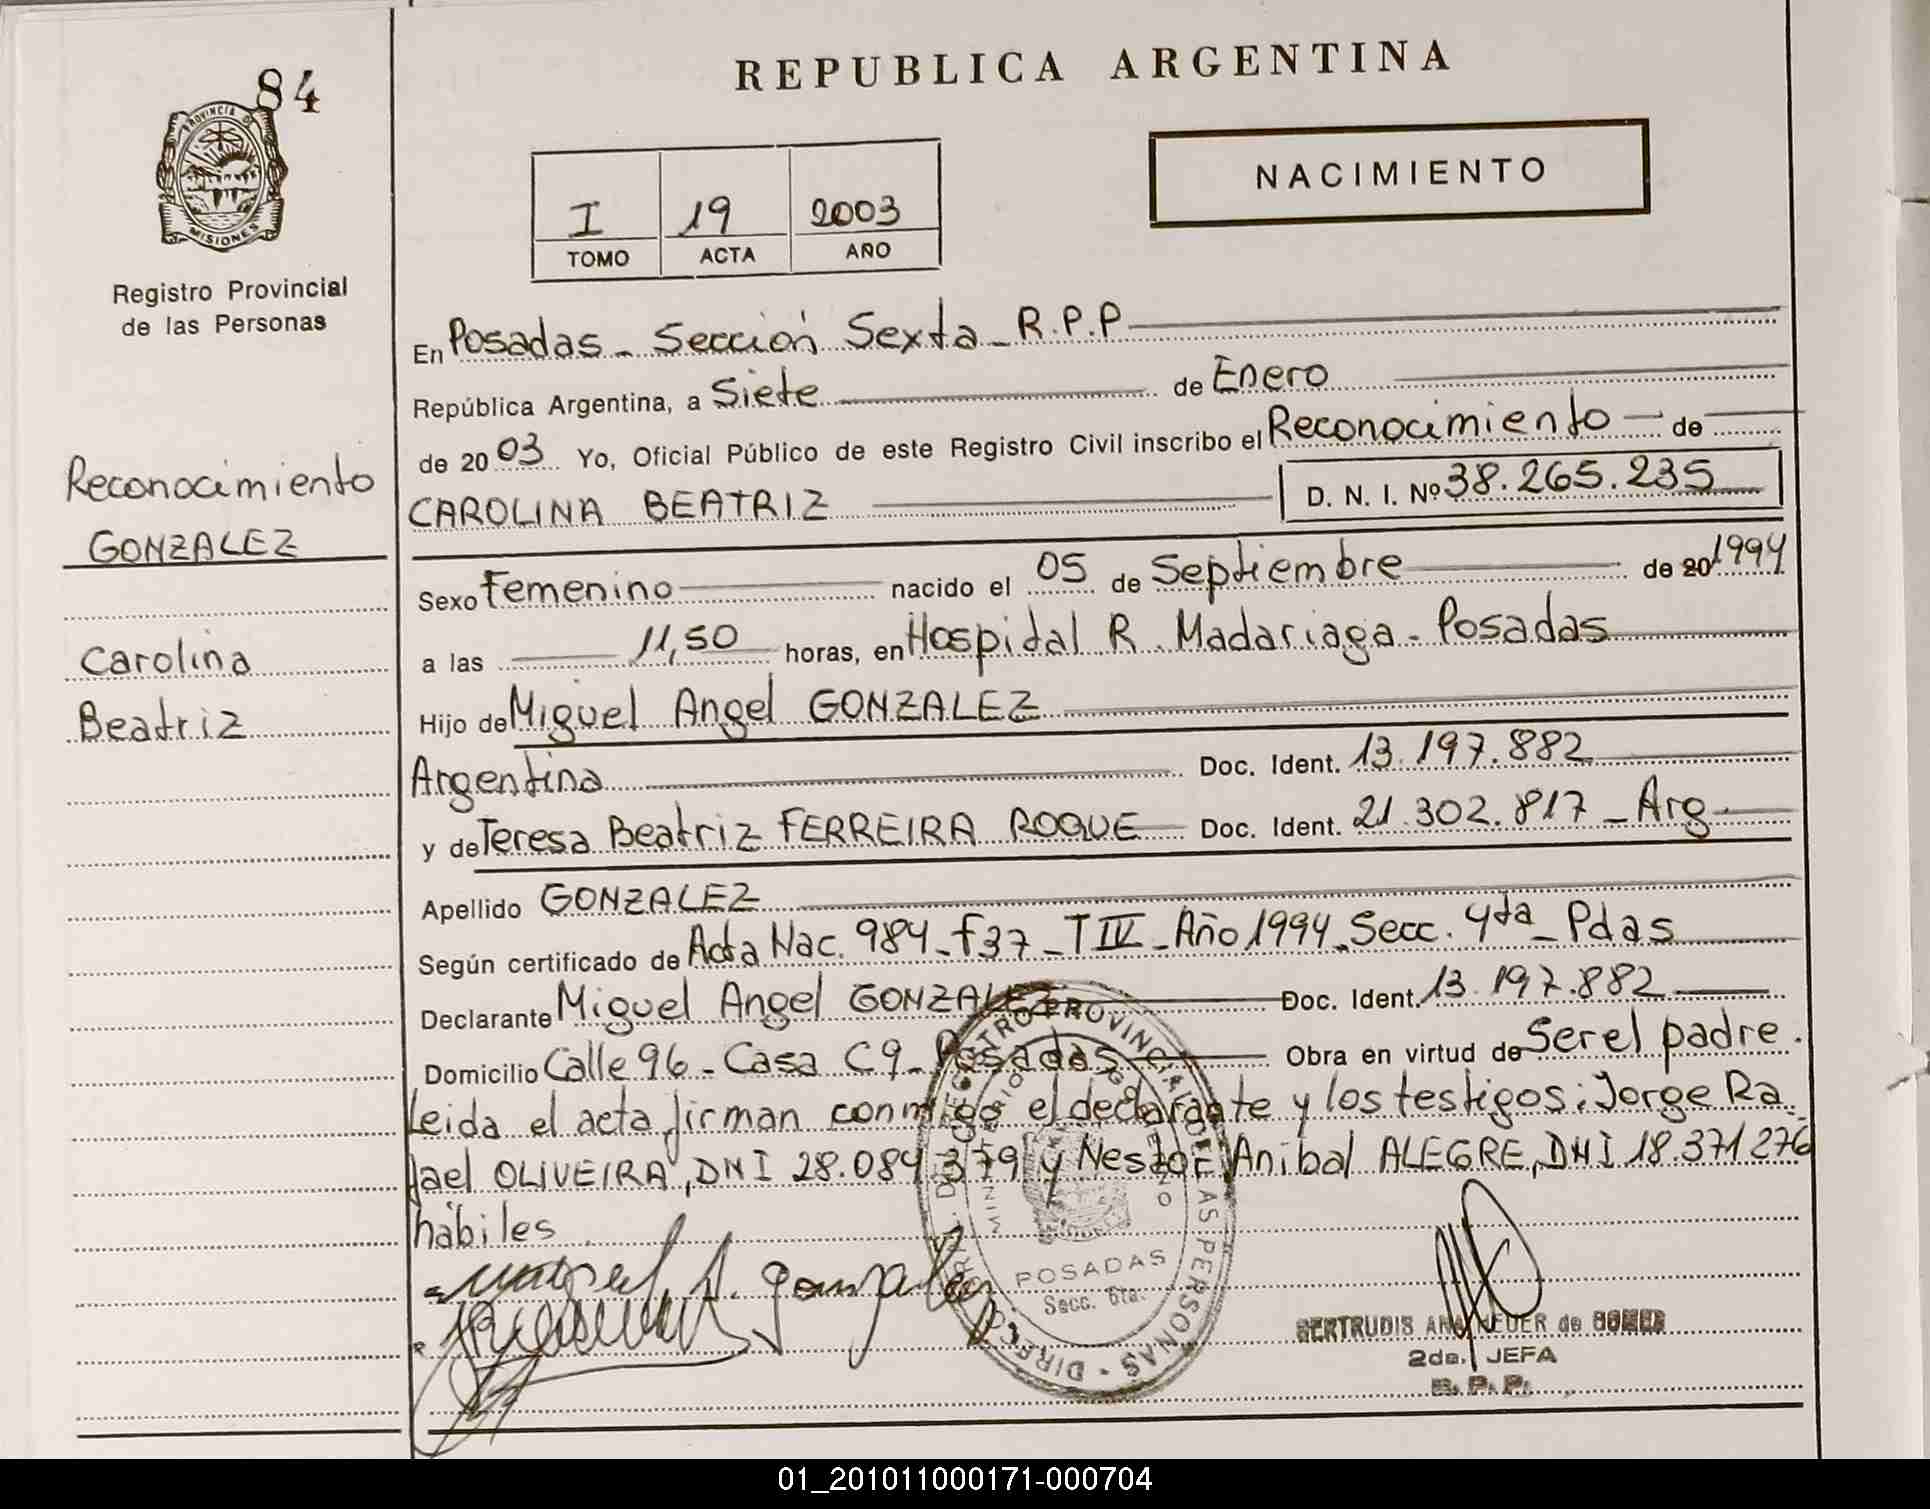 84
PROVINCIA DE
MISIONES
Registro Provincial
de las Personas
Reconocimiento
GONZALEZ
Carolina
Beatriz
REPUBLICA ARGENTINA
NACIMIENTO
I 19 2003
TOMO ACTA AÑO
En Posadas - Sección Sexta - R.P.P
República Argentina, a Siete de Enero
de 2003 Yo, Oficial Público de este Registro Civil inscribo el Reconocimiento de
CAROLINA BEATRIZ D. N. I. Nº 38.265.235
Sexo Femenino nacido el 05 de Septiembre de 20 1994
a las 11,50 horas, en Hospital R. Madariaga - Posadas
Hijo de Miguel Angel GONZALEZ
Argentina Doc. Ident. 13.197.882
y de Teresa Beatriz FERREIRA ROQUE Doc. Ident. 21.302.817 - Arg
Apellido GONZALEZ
Según certificado de Acta Nac. 984 - F37 - T IV - Año 1994 - Secc. 4ta - Pdas
Declarante Miguel Angel GONZALEZ Doc. Ident. 13.197.882
Domicilio Calle 96 - Casa C9 - Posadas Obra en virtud de Ser el padre.
Leida el acta firman conmigo el declarante y los testigos: Jorge Ra
fael OLIVEIRA, DNI 28.084.379 y Nestor Anibal ALEGRE, DNI 18.371276
hábiles
Miguel A. Gonzalez
POSADAS
Secc. 6ta.
GERTRUDIS ANA de
2da. JEFA
R. P. P.
01_201011000171-000704